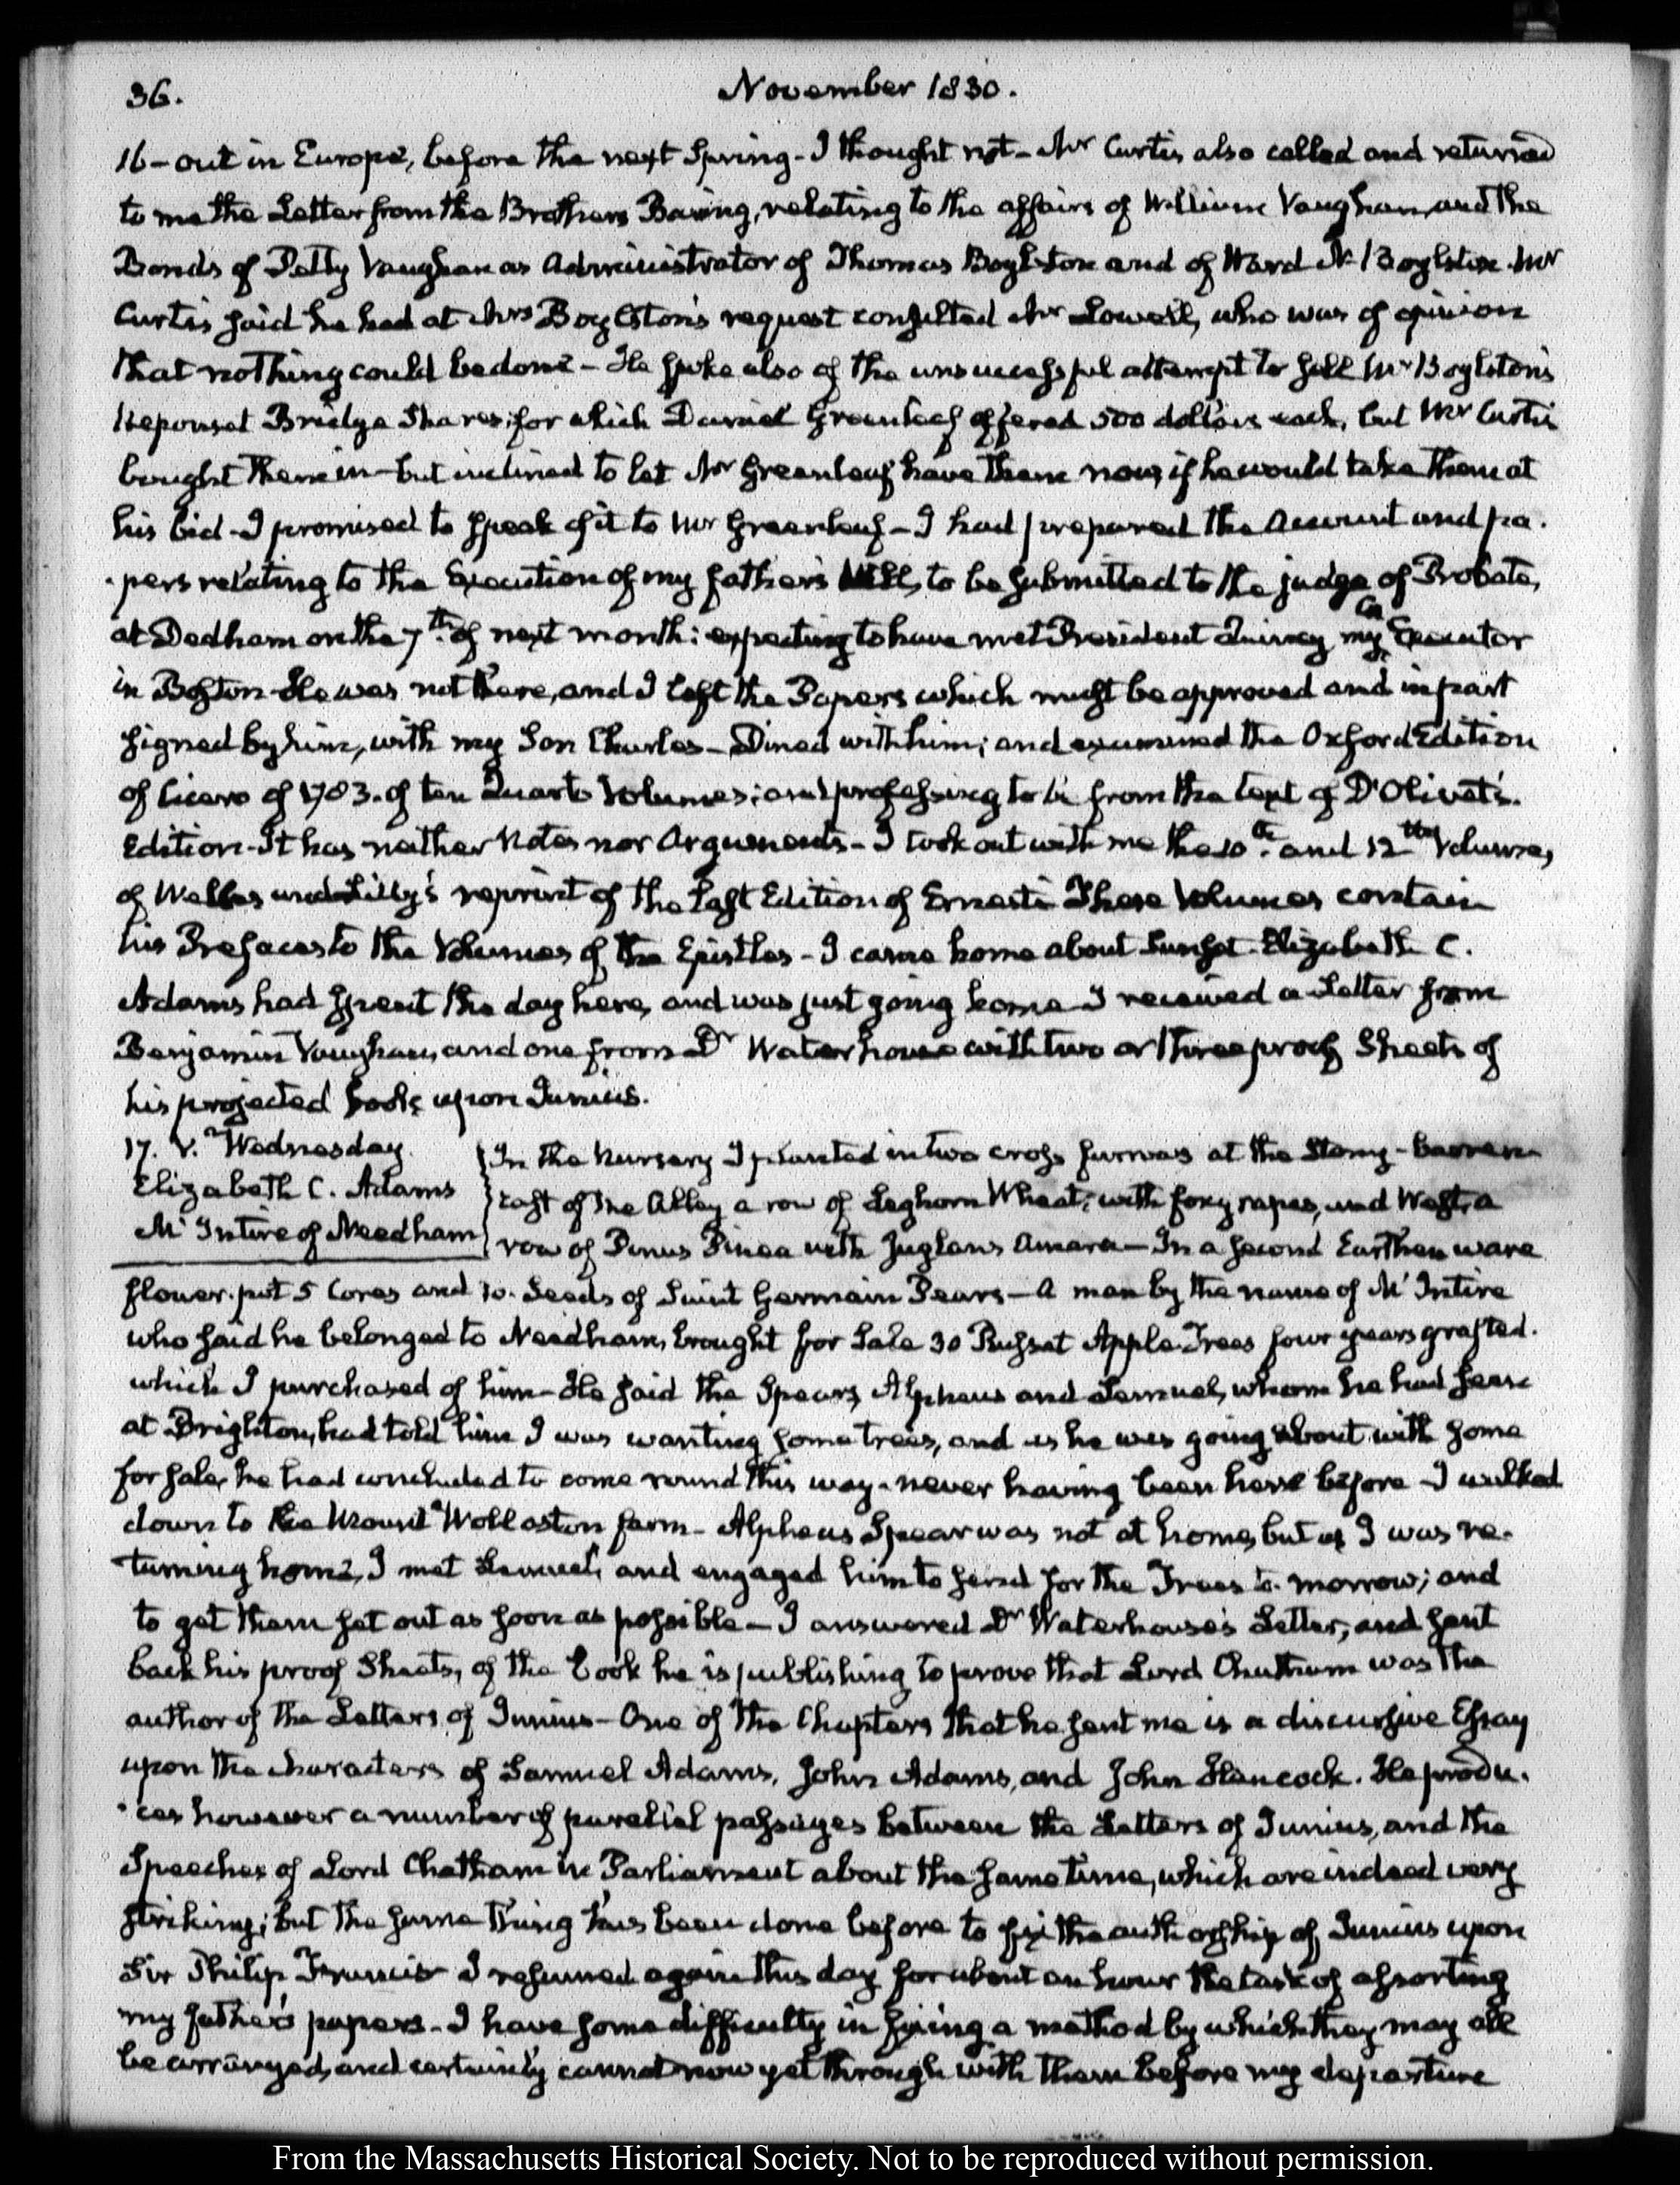 36.
November 1830.
16 – out in Europe, before the next Spring – I thought not – Mr Curtis also called and returned
to me the Letter from the Brothers Baring, relating to the affairs of William Vaughan, and the
Bonds of Petty Vaughan as Administrator of Thomas Boylston and of Ward N. Boylston. Mr
Curtis said he had at Mrs Boylston's request consulted Mr Lowell, who was of opinion
that nothing could be done – He spoke also of the unsuccessful attempt to sell Mr Boylston's
Neponset Bridge Shares; for which Daniel Greenleaf offered 500 dollars each, but Mr Curtis
bought them in – but inclined to let Mr Greenleaf have them now, if he would take them at
his bid – I promised to speak of it to Mr Greenleaf – I had prepared the Account and pa-
-pers relating to the Execution of my father's Will, to be submitted to the judge of Probate,
at Dedham on the 7th. of next month: expecting to have met President Quincy my Co Executor
in Boston – He was not there, and I left the Papers which must be approved and in part
signed by him, with my Son Charles – Dined with him; and examined the Oxford Edition
of Cicero of 1783. of ten Quarto Volumes; and professing to be from the text of D'Olivet's.
Edition – It has neither Notes nor Arguments – I took out with me the 10th. and 12th Volumes,
of Welles and Lilly's reprint of the last Edition of Ernesti These Volumes contain
his Prefaces to the Volumes of the Epistles – I came home about Sunset. Elizabeth C.
Adams had spent the day here, and was just going home – I received a Letter from
Benjamin Vaughan, and one from Dr Waterhouse with two or three proof Sheets of
his projected book upon Junius.
17. V. Wednesday.
Elizabeth C. Adams
Mc Intire of Needham
In the Nursery I planted in two cross furrows at the Stony-barren
East of the Alley a row of Leghorn Wheat; with foxgrapes, and West, a
row of Pinus Pinea with Juglans Amara – In a second Earthen ware
flower-pot 5 Cores and 10. Seeds of Saint Germain Pears – A man by the name of Mc Intire
who said he belonged to Needham, brought for Sale 30 Russet Apple-Trees four years grafted.
which I purchased of him – He said the Spears, Alpheus and Lemuel, whom he had seen
at Brighton, had told him I was wanting some trees, and as he was going about with some
for sale, he had concluded to come round this way – never having been here before – I walked
down to the Mount Wollaston farm – Alpheus Spear was not at home, but as I was re-
-turning home, I met Lemuel, and engaged him to send for the Trees to-morrow; and
to get them set out as soon as possible – I answered Dr Waterhouse's Letter, and sent
back his proof Sheets, of the book he is publishing to prove that Lord Chatham was the
author of the Letters of Junius – One of the Chapters that he sent me is a discursive Essay
upon the characters of Samuel Adams, John Adams, and John Hancock. He produ-
-ces however a number of parallel passages between the Letters of Junius, and the
Speeches of Lord Chatham in Parliament about the same time, which are indeed very
striking; but the same thing has been done before to fix the authorship of Junius upon
Sir Philip Francis – I resumed again this day for about an hour the task of assorting
my father's papers – I have some difficulty in fixing a method by which they may all
be arranged, and certainly cannot now get through with them before my departure
From the Massachusetts Historical Society. Not to be reproduced without permission.